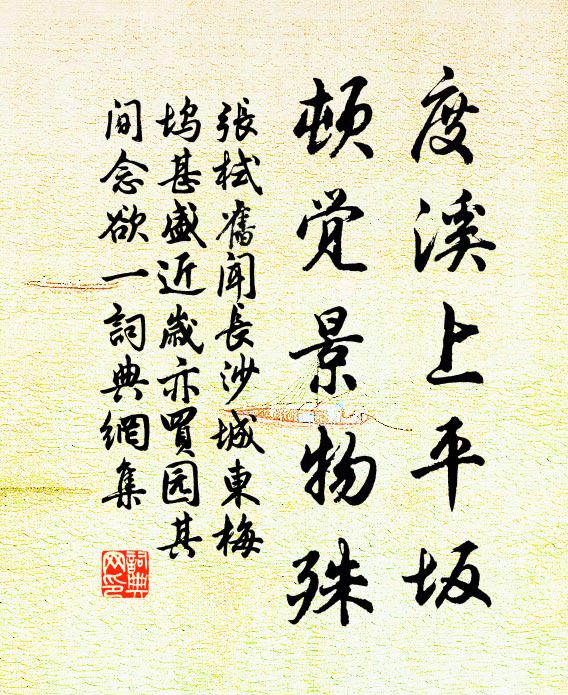 度溪上平坂
顿觉景物殊
張栻舊聞長沙城東梅
塢甚盛近歲亦買园其
间念欲一詞典網集
詞典
网印